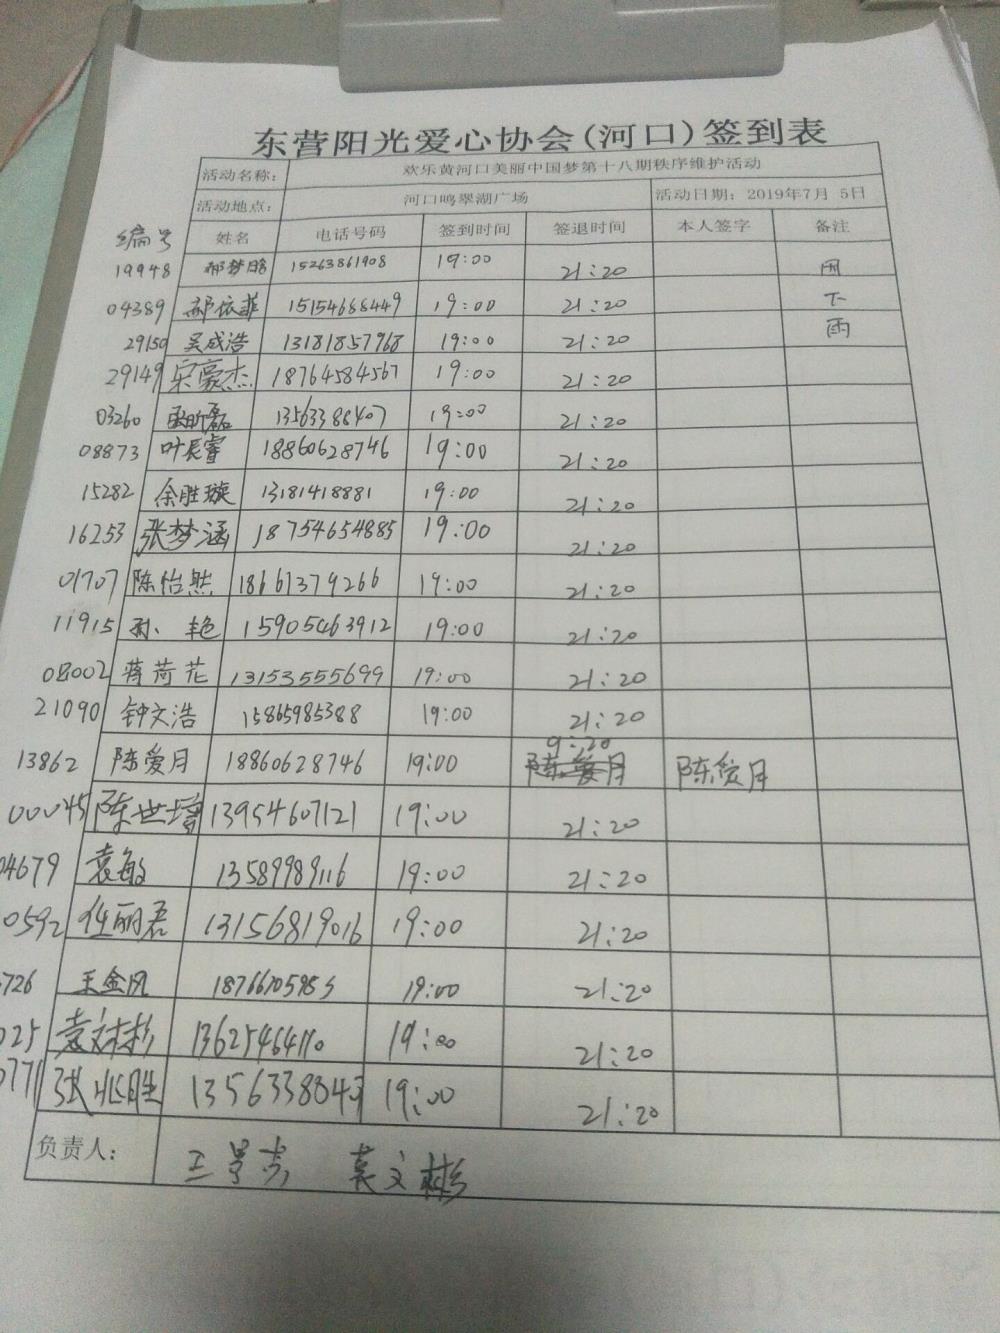 东营阳光爱心协会(河口)签到表
活动名称： 欢乐黄河口美丽中国梦第十八期秩序维护活动
活动地点： 河口鸣翠湖广场 活动日期：2019年7月 5日
编号 姓名 电话号码 签到时间 签退时间 本人签字 备注
19948 郝梦晗 15263861908 19:00 21:20
04389 郝依菲 15154688449 19:00 21:20 下
29150 吴成浩 13181857968 19:00 21:20 雨
29149 宋豪杰 18764584567 19:00 21:20
03260 13563388407 19:00 21:20
08873 叶长睿 18860628746 19:00 21:20
15282 余胜璇 13181418881 19:00 21:20
16253 张梦涵 18754654885 19:00 21:20
01707 陈怡然 18661379266 19:00 21:20
11915 孙艳 15905463912 19:00 21:20
08002 蒋荷花 13153555699 19:00 21:20
21090 钟文浩 15865985388 19:00 21:20
13862 陈爱月 18860628746 19:00 9:20 陈爱月 陈爱月
00045 陈世增 13954607121 19:00 21:20
04679 袁敏 13589989116 19:00 21:20
0592 任丽君 13156819016 19:00 21:20
726 王金凤 19:00 21:20
025 袁文彬 13625464110 19:00 21:20
0771 张兆胜 19:00 21:20
负责人： 袁文彬